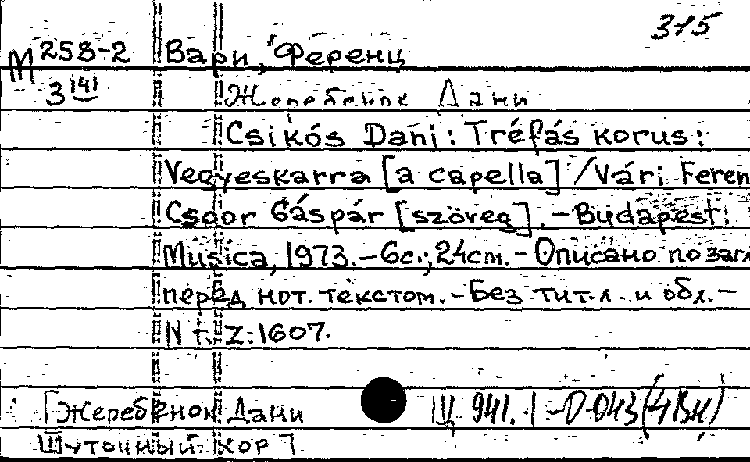 315
М 258-2 Вари, Ференц
3 141
Жеребенок Дани
Csikós Dani: Tréfás korus:
Vegyeskarra [a capella] / Vári Feren
Csoor Gáspár [szöveg]. - Budapest:
Musica, 1973. - 6с.; 24cm. - Описано по загл
перед нот. текстом. - Без тит. л. и обл. -
N f. Z: 1607.
[Жеребенок Дани Щ 941.1-0-043(4Вн)
Шуточный хор]